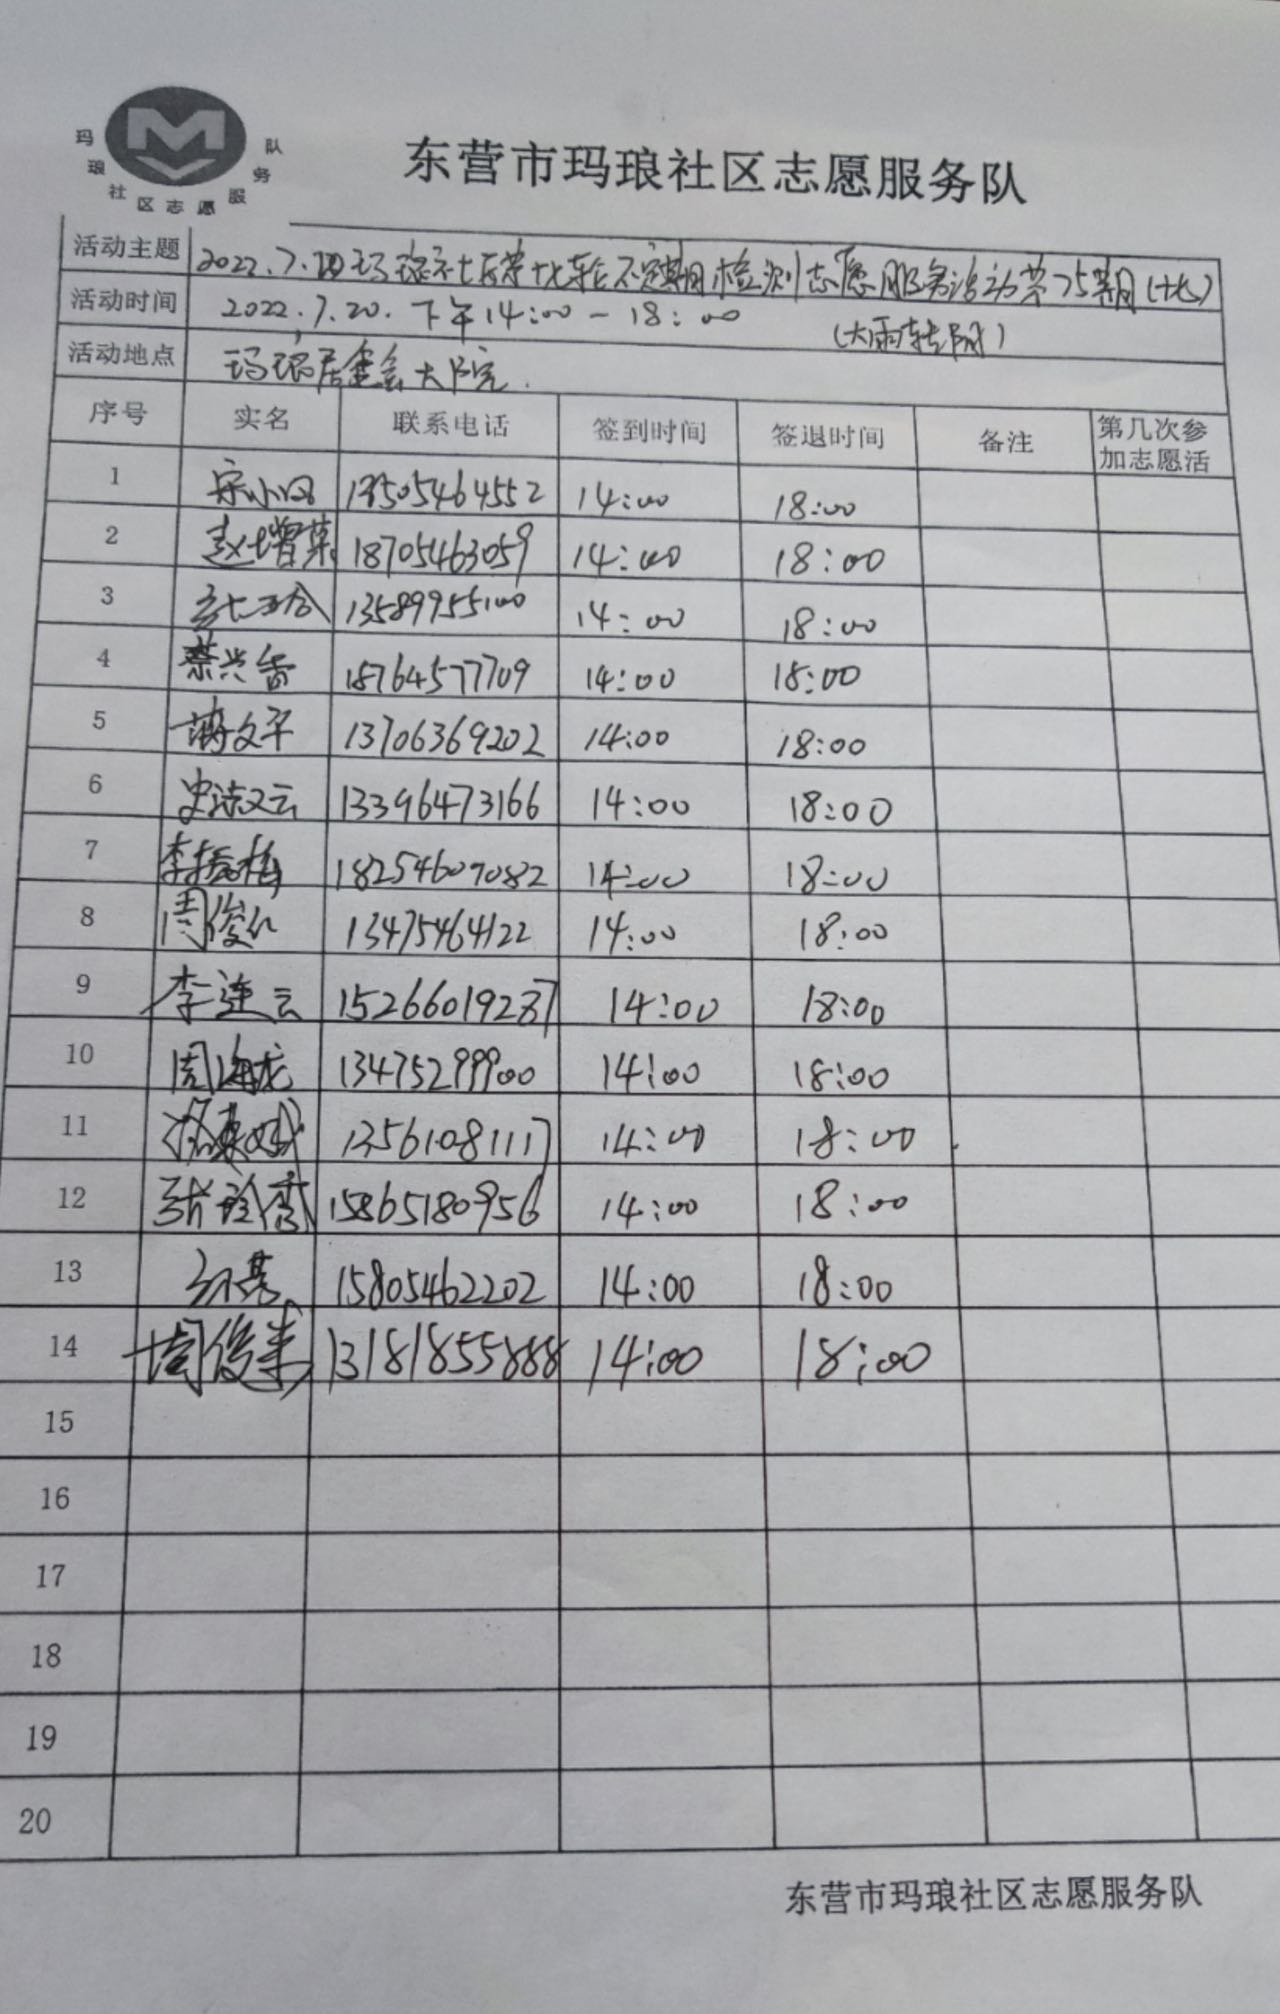 玛琅社区志愿服务队
东营市玛琅社区志愿服务队
活动主题 2022.7.20玛琅社区第十七轮不定期检测志愿服务活动第75期(十七)
活动时间 2022.7.20.下午14:00-18:00 (大雨转阴)
活动地点 玛琅居委会大院.
序号 实名 联系电话 签到时间 签退时间 备注 第几次参加志愿活
1 宋小凤 13505464552 14:00 18:00
2 赵增荣 18705463059 14:00 18:00
3 13589955100 14:00 18:00
4 蔡兴香 15764577709 14:00 18:00
5 文平 13706369202 14:00 18:00
6 史洪云 13396473166 14:00 18:00
7 李振梅 18254609082 14:00 18:00
8 周俊仁 13475464122 14:00 18:00
9 李连云 15266019287 14:00 18:00
10 周海龙 13475299900 14:00 18:00
11 13561081117 14:00 18:00
12 张玲秀 15865180956 14:00 18:00
13 15805462202 14:00 18:00
14 周俊来 13181855888 14:00 18:00
15
16
17
18
19
20
东营市玛琅社区志愿服务队